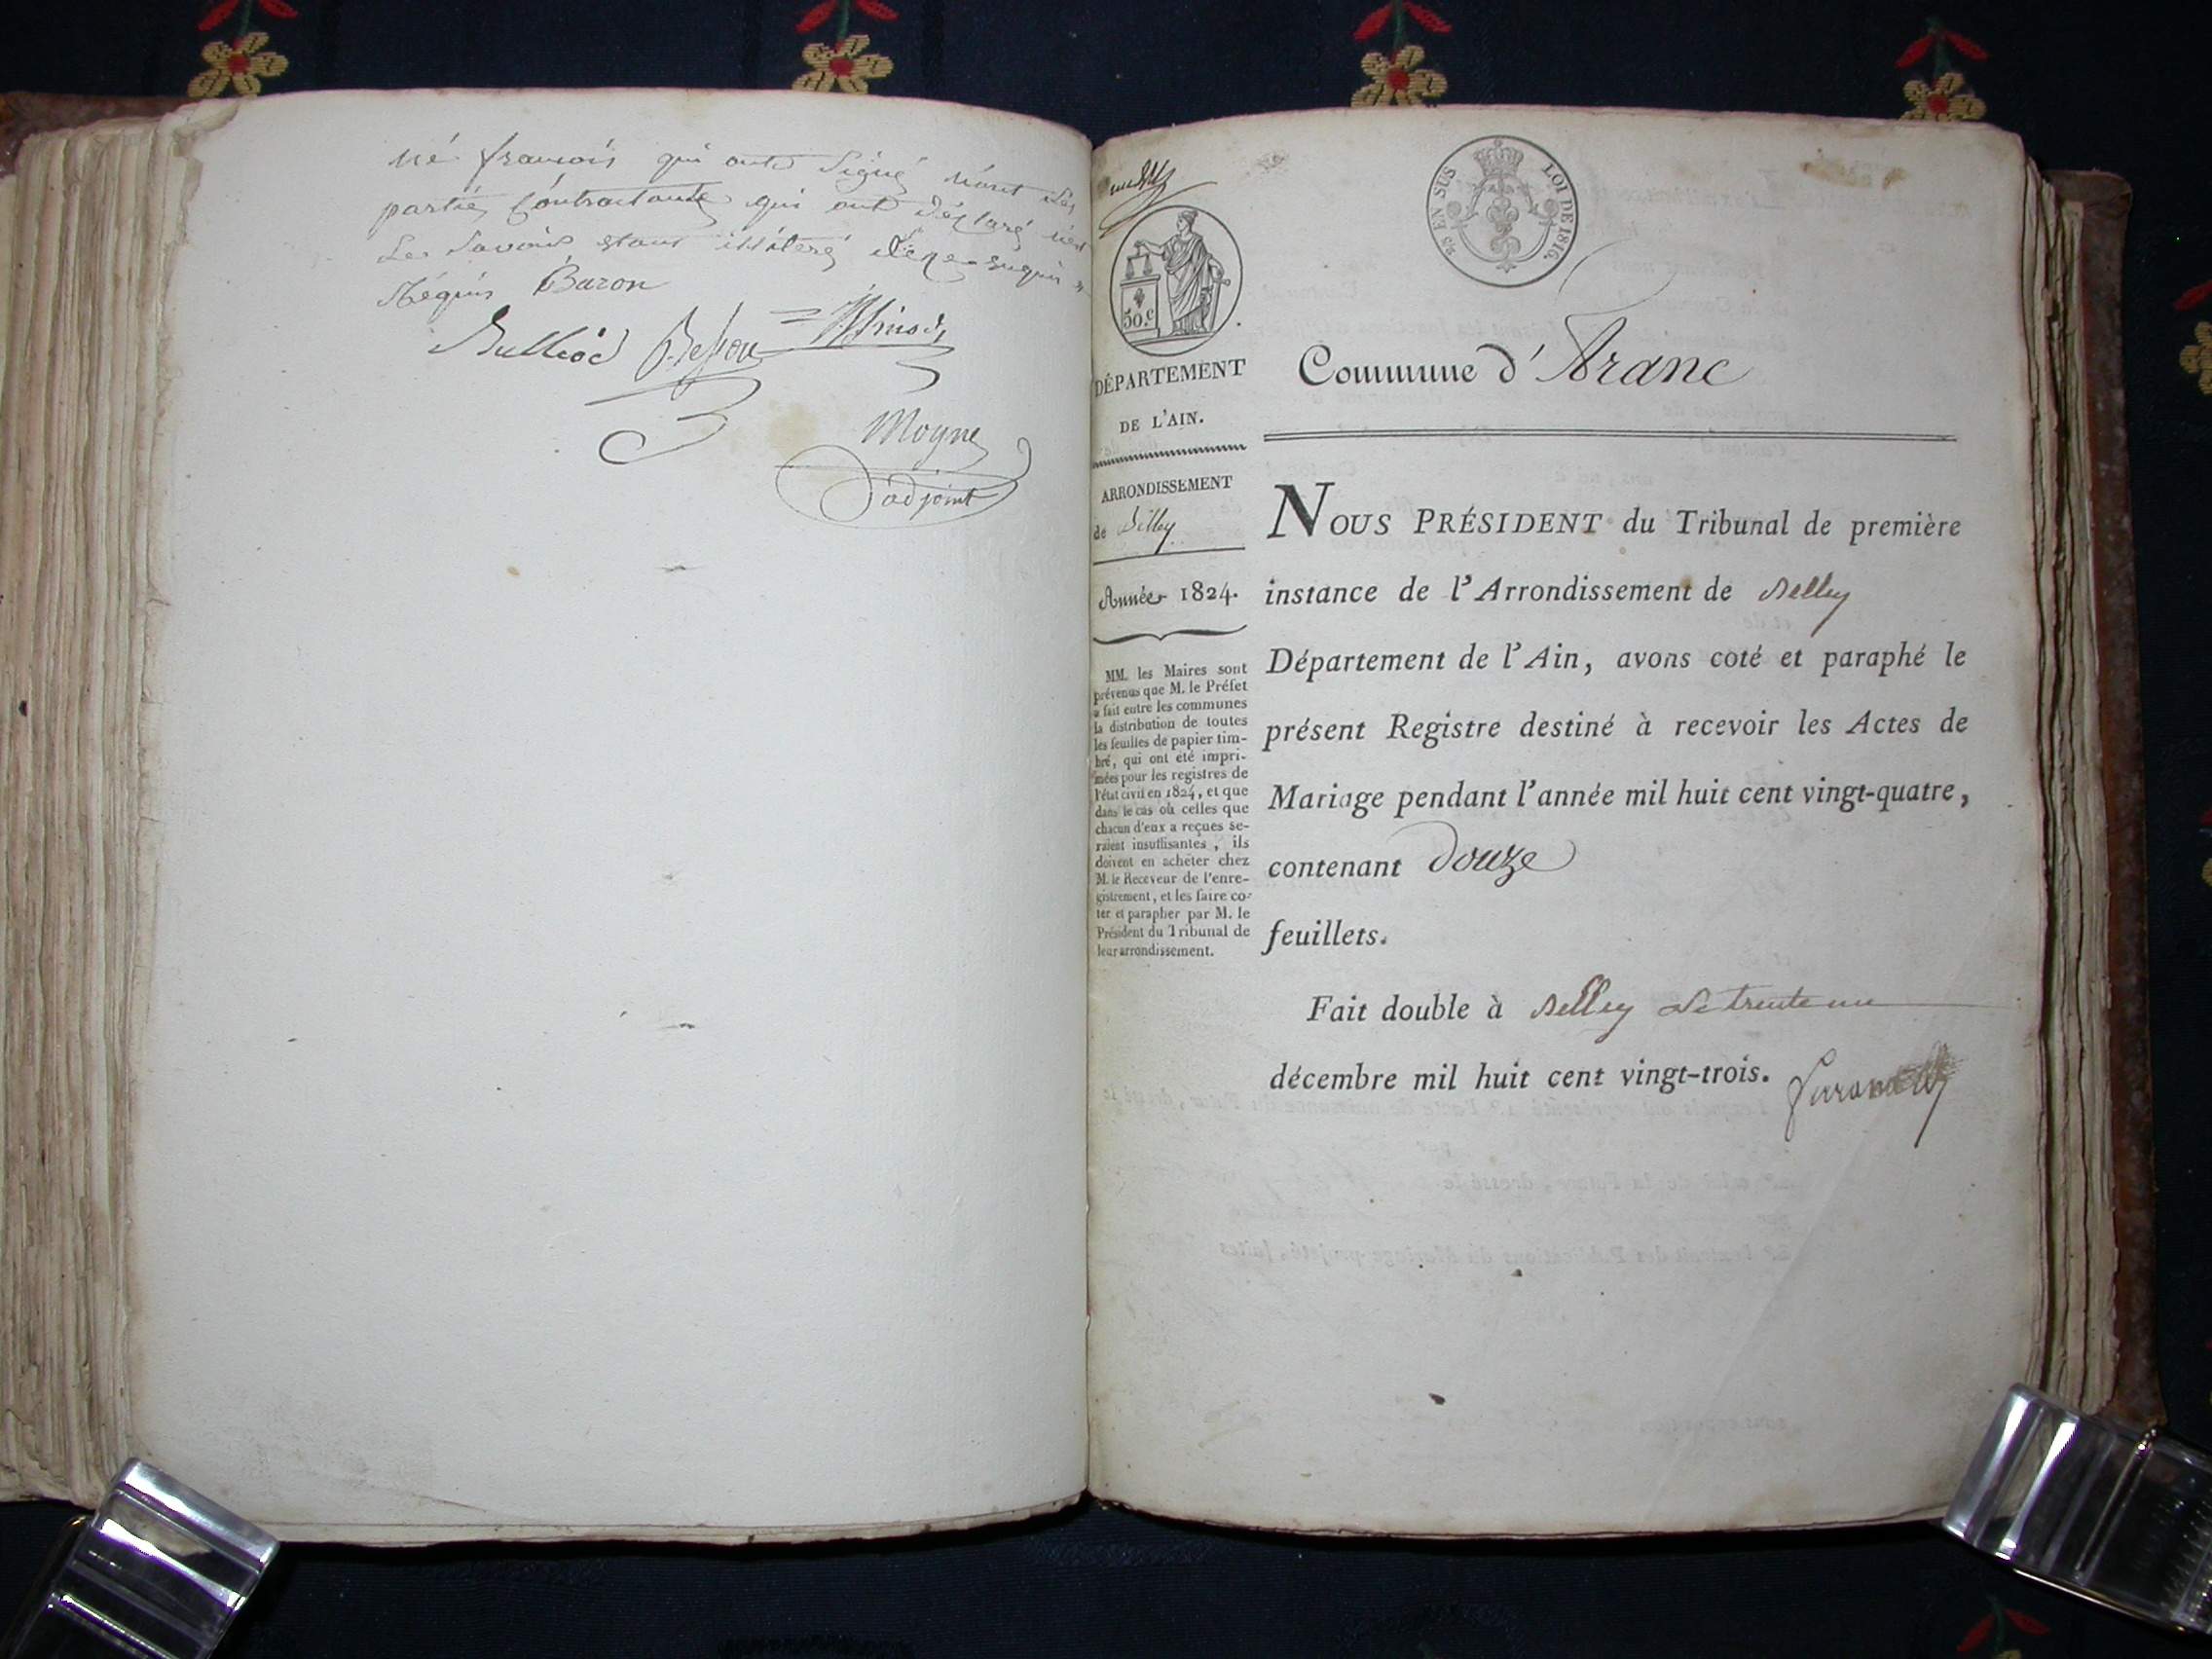 né francois qui ont signé non les
partie contractante qui ont déclaré
Les savoir étant illiteré de ce enquis
Réquis Baron
Bulliod Besson
Moyne
adjoint
5.s EN SUS LOI DE 1816.
50.c
DÉPARTEMENT
DE L'AIN.
ARRONDISSEMENT
de Belley
Année 1824.
MM. les Maires sont
prévenus que M. le Préfet
a fait entre les communes
la distribution de toutes
les feuilles de papier tim-
bré, qui ont été impri-
mées pour les registres de
l'état civil en 1824, et que
dans le cas où celles que
chacun d'eux a reçues se-
raient insuffisantes, ils
doivent en acheter chez
M. le Receveur de l'enre-
gistrement, et les faire co-
ter et parapher par M. le
Président du Tribunal de
leur arrondissement.
Commune d'Aranc
NOUS PRÉSIDENT du Tribunal de première
instance de l'Arrondissement de Belley
Département de l'Ain, avons coté et paraphé le
présent Registre destiné à recevoir les Actes de
Mariage pendant l'année mil huit cent vingt-quatre,
contenant Douze
feuillets.
Fait double à Belley le trente un
décembre mil huit cent vingt-trois.